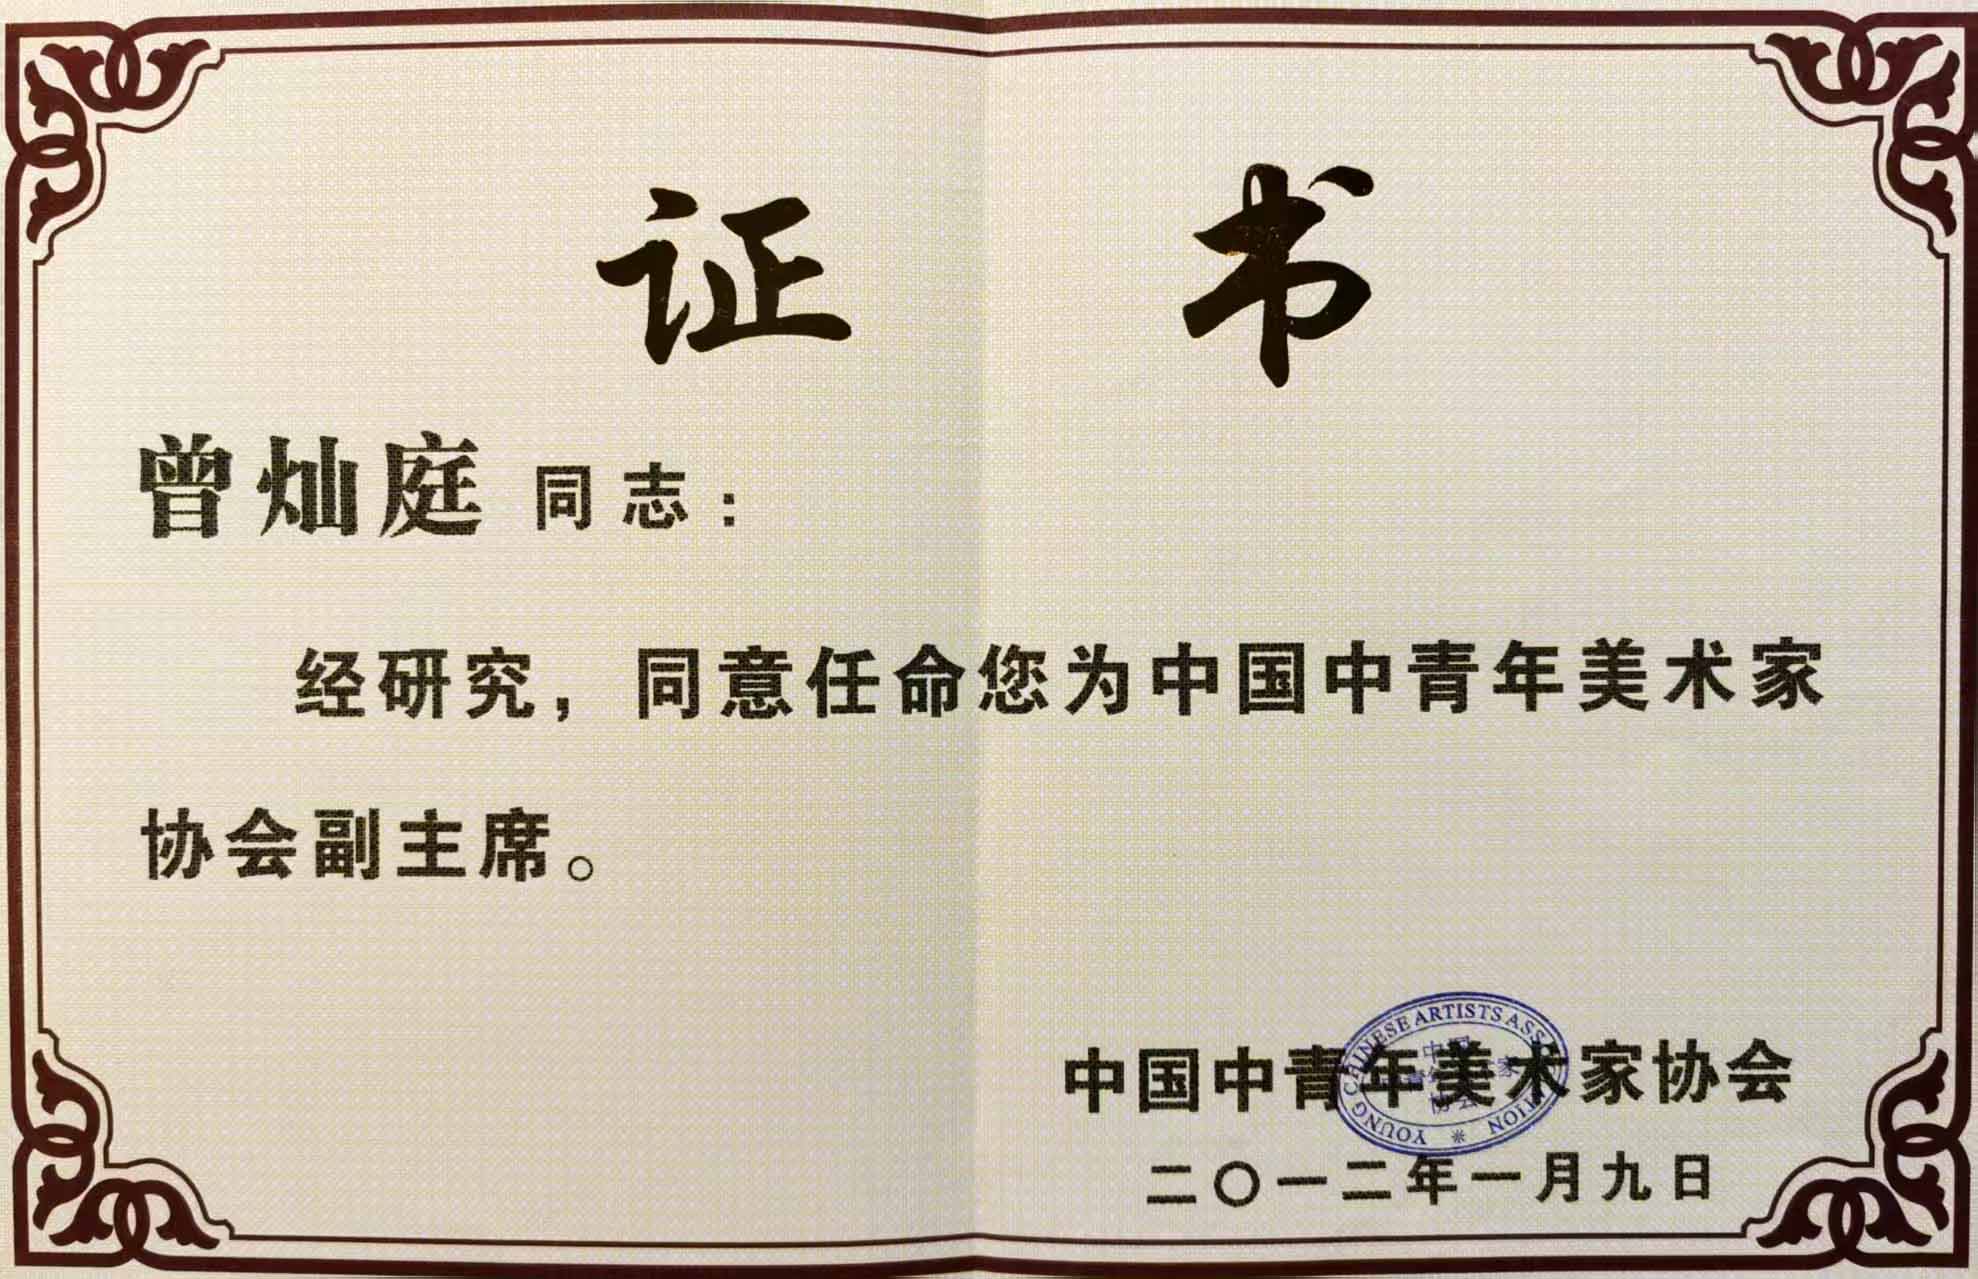 证书
曾灿庭 同志：
经研究，同意任命您为中国中青年美术家
协会副主席。
中国中青年美术家协会
YOUNG CHINESE ARTISTS ASSOCIATION
中国
协会
二〇一二年一月九日